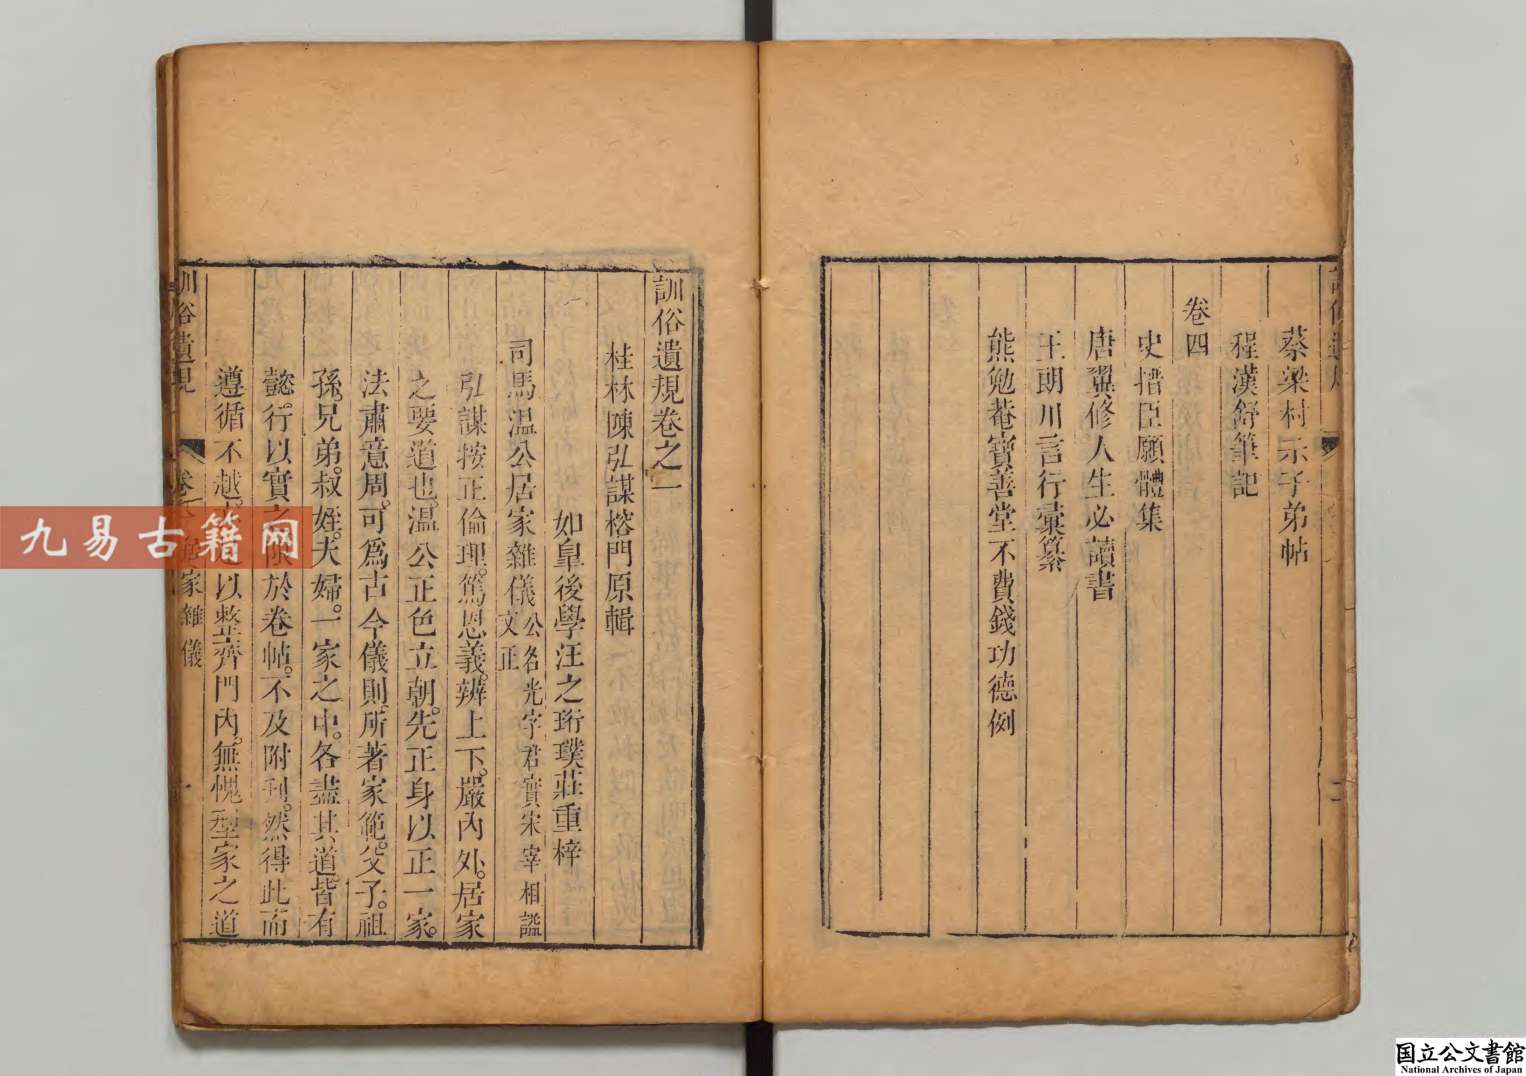 蔡梁村示子弟帖
程漢舒筆記
卷四
史搢臣願體集
唐翼修人生必讀書
王朗川言行彙纂
熊勉菴寶善堂不費錢功德例
訓俗遺規卷之一
桂林陳弘謀榕門原輯
如皐後學汪之珩璞莊重梓
司馬溫公居家雜儀 公名光字君實宋宰相謚文正
弘謀按正倫理。篤恩義。辨上下。嚴內外。居家
之要道也。溫公正色立朝。先正身以正一家。
法肅意周。可爲古今儀則。所著家範。父子。祖
孫。兄弟。叔姪。夫婦。一家之中。各盡其道。皆有
懿行以實之
於卷帖。不及附刊。然得此而
遵循不越
以整齊門內。無愧型家之道
訓俗遺規
家雜儀
九易古籍网
国立公文書館
National Archives of Japan